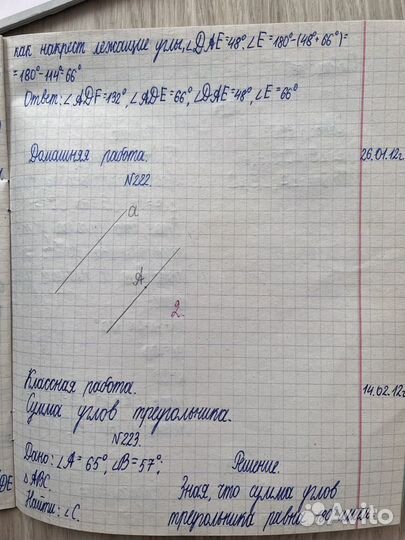 как накрест лежащие углы, ∠DAE=48°, ∠E=180°-(48°+66°)=
=180°-114°=66°
Ответ: ∠ADF=132°, ∠ADE=66°, ∠DAE=48°, ∠E=66°
Домашняя работа. 26.01.12г
N222.
a
A
2
Классная работа. 14.02.12г
Сумма углов треугольника.
N223.
Дано: ∠A=65°, ∠B=57°; Решение.
△ABC. Зная, что сумма углов
Найти: ∠C. треугольника равна
DE
Avito